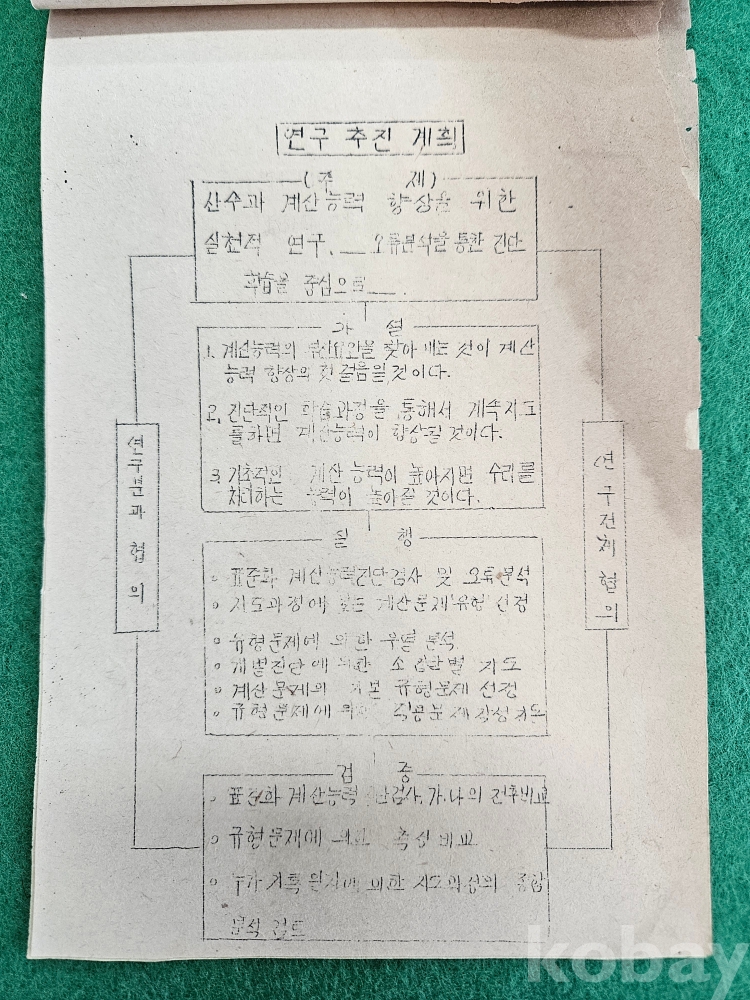 연구 추진 계획
(주 제)
산수과 계산능력 향상을 위한
실천적 연구. __ 오류분석을 통한 진단
학習을 중심으로__.
가 설
1. 계산능력의 부진요인을 찾아 내는 것이 계산
능력 향상의 첫 걸음일 것이다.
2. 진단적인 학習과정을 통해서 계속지도
를하면 계산능력이 향상될 것이다.
3. 기초적인 계산 능력이 높아지면 수리를
처리하는 능력이 높아질 것이다.
연구분과협의
연구전체협의
실 행
○ 표준화 계산능력진단검사 및 오류분석
○ 지도과정에 맞는 계산문제 유형 선정
○ 유형문제에 의한 우열 분석
○ 개별진단에 의한 소집단별 지도
○ 계산문제의 기본 유형문제 선정
○ 유형문제에 작성지도
검 증
○ 표준화 계산능력 진단검사 가.나의 전후비교
○ 유형문제에 의한 측정 비교
○ 누가기록 에 의한 지도 의 종합
분석 검토
kobay